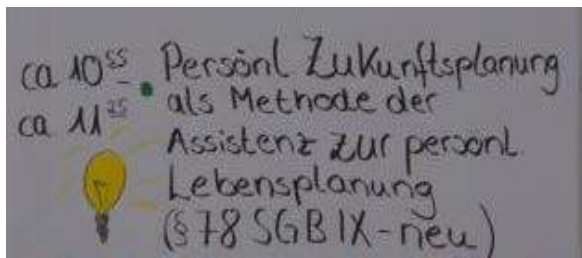 ca 10⁵⁵ - Persönl Zukunftsplanung
ca 11²⁵ als Methode der
Assistenz zur persönl.
Lebensplanung
(§ 78 SGB IX - neu)